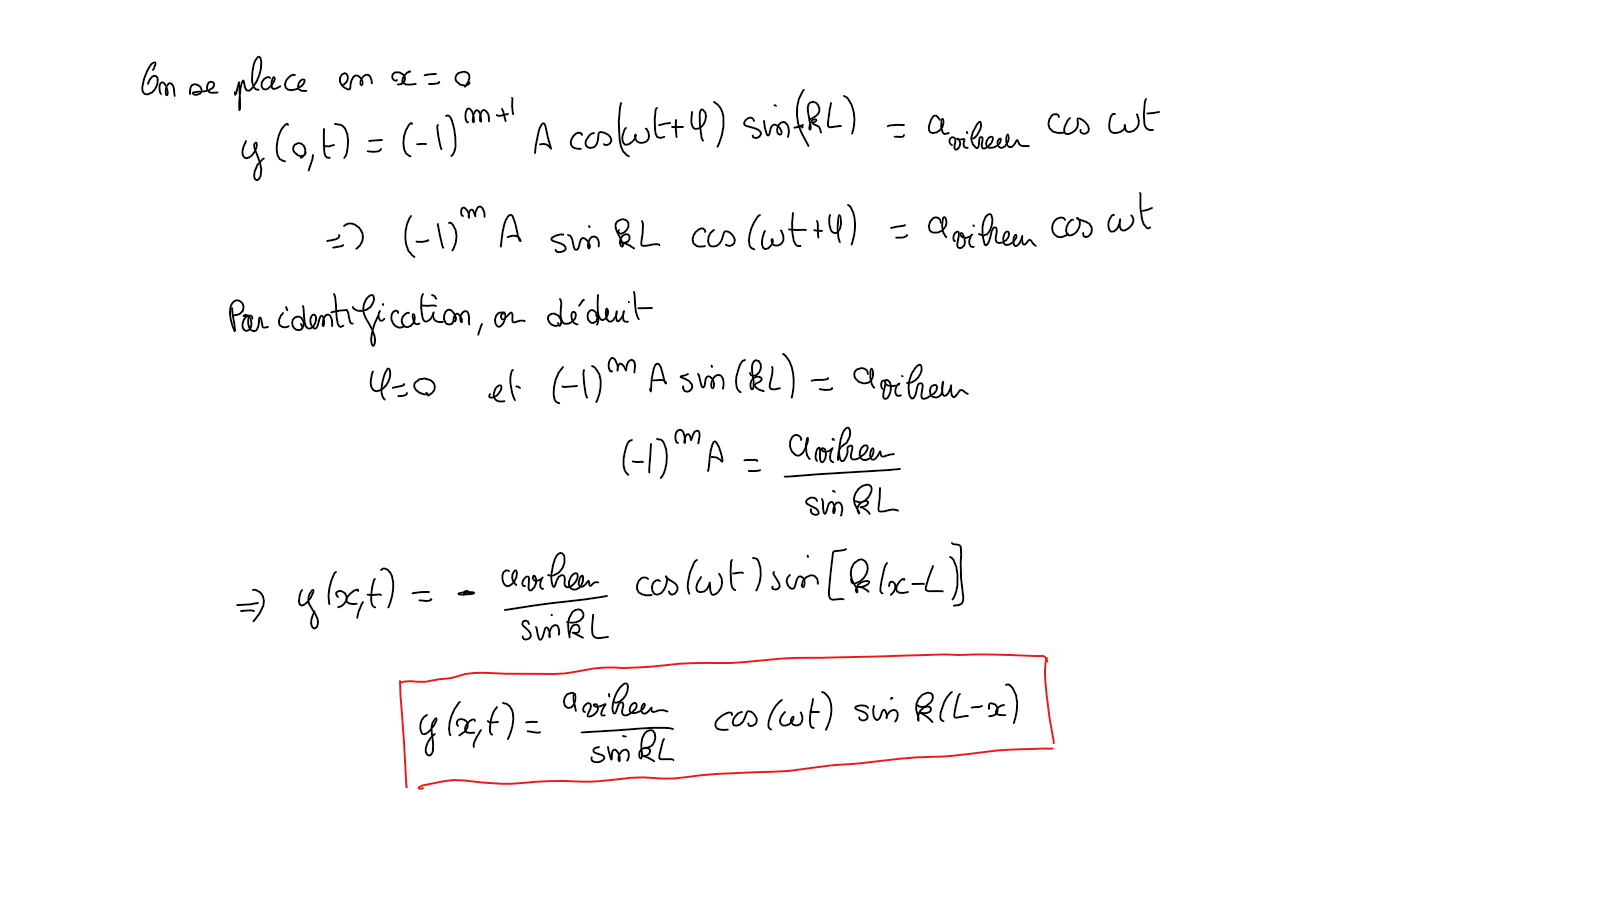 On se place en x = 0
y(0,t) = (-1)^{m+1} A cos(ωt+φ) sin(-kL) = a_{vibreur} cos ωt
=> (-1)^m A sin kL cos(ωt+φ) = a_{vibreur} cos ωt
Par identification, on déduit
φ=0 et (-1)^m A sin(kL) = a_{vibreur}
(-1)^m A = a_{vibreur} / sin kL
=> y(x,t) = - a_{vibreur} / sin kL cos(ωt) sin[k(x-L)]
y(x,t) = a_{vibreur} / sin kL cos(ωt) sin k(L-x)